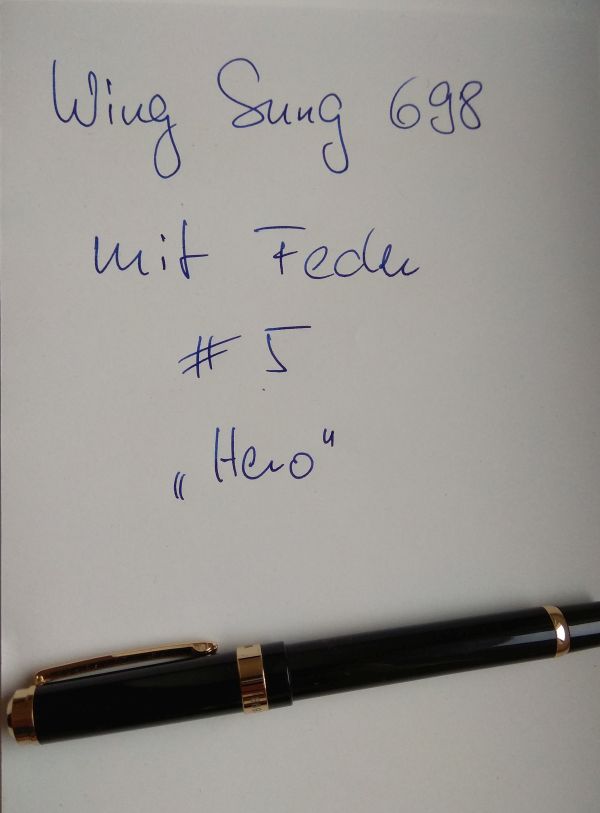 Wing Sung 698
mit Feder
# 5
„Hero“